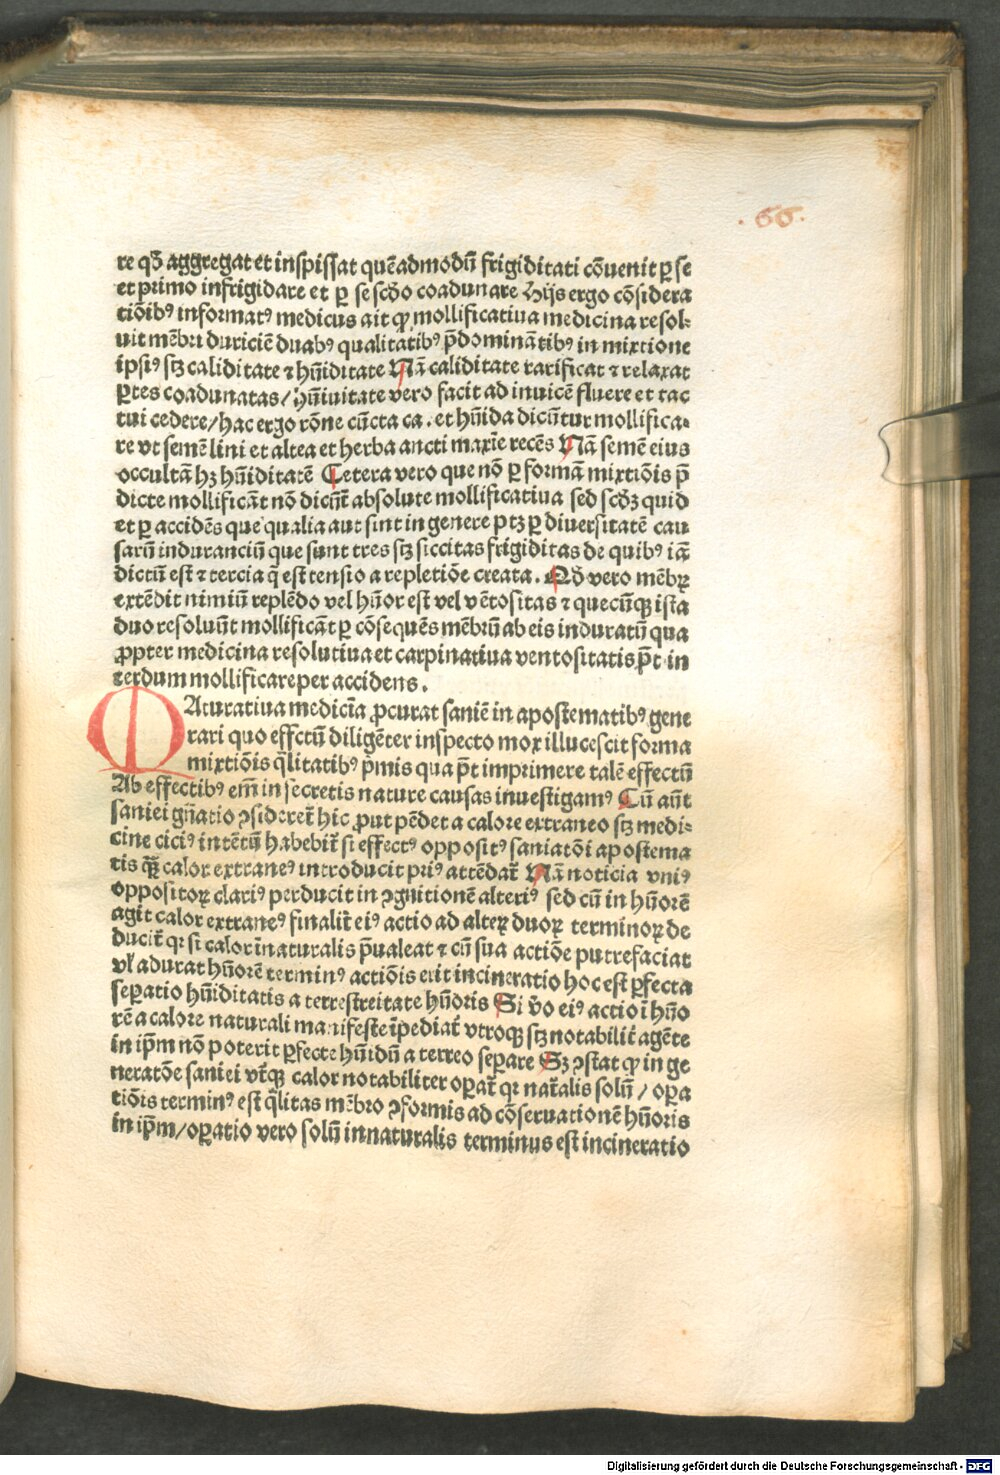 .66.
re qđ aggregat et inspissat quēadmodū frigiditati cōuenit ꝑ se
et primo infrigidare et ꝑ se scđo coadunare Hijs ergo cōsidera
tiōibꝰ informatꝰ medicus ait ꝙ mollificatiua medicina resol⸗
uit mēbri duriciē duabꝰ qualitatibꝰ p̄dominātibꝰ in mixtione
ipsiꝰ stꝫ caliditate ⁊ hūiditate Nā caliditate rarificat ⁊ relaxat
ꝑtes coadunatas/ hūiuitate vero facit ad inuicē fluere et tac
tui cedere/ hac ergo rōne cūcta ca. et hūida dicūtur mollifica⸗
re vt semē lini et altea et herba ancti maxīe recēs Nā semē eius
occultā hꝫ hūiditatē Cetera vero que nō ꝑ formā mixtiōis p̄
dicte mollificāt nō dicūt̄ absolute mollificatiua sed scđꝫ quid
et ꝑ accidēs que qualia aut sint in genere ptꝫ ꝑ diuersitatē cau
sarū induranciū que sunt tres stꝫ siccitas frigiditas de quibꝰ iā
dictū est ⁊ tercia q̄ est tensio a repletiōe creata. Qđ vero mēbꝝ
extēdit nimiū replēdo vel hūor est vel vētositas ⁊ quecūqꝫ ista
duo resoluūt mollificāt ꝑ cōsequēs mēbrū ab eis induratū qua
ꝓpter medicina resolutiua et carpinatiua ventositatis p̄t in
terdum mollificare per accidens.
MAturatiua medicīa ꝓcurat saniē in apostematibꝰ gene
rari quo effctū diligēter inspecto mox illucescit forma
mixtiōis q̄litatibꝰ p̄mis qua p̄t imprimere talē effectū
Ab effectibꝰ em̄ in secretis nature causas inuestigamꝰ Cū aūt
saniei gn̄atio ꝯsideret̄ hic ꝓut pēdet a calore extraneo stꝫ medi⸗
cine ciciꝰ intētū habebit̄ si effectꝰ oppositꝰ saniatōi apostema
tis qꝫ̄ calor extraneꝰ introducit priꝰ attēdat̄ Nā noticia vniꝰ
oppositoꝝ clariꝰ perducit in ꝯgnitionē alteriꝰ sed cū in hūorē
agit calor extraneꝰ finalit̄ eiꝰ actio ad alteꝝ duoꝝ terminoꝝ de
ducit̄ qꝛ si calor īnaturalis p̄ualeat ⁊ cū sua actiōe putrefaciat
vl̓ adurat hūorē terminꝰ actiōis erit incineratio hoc est ꝑfecta
seꝑatio hūiditatis a terrestreitate hūoris Si v̄o eiꝰ actio ī hūo
rē a calore naturali manifeste īpediat̄ vtroqꝫ stꝫ notabilit̄ agēte
in ip̄m nō poterit ꝑfecte hūidū a terreo seꝑare Sꝫ ꝯstat ꝙ in ge
neratōe saniei vt̄qꝫ calor notabiliter oꝑat̄ qꝛ nat̄alis solū / oꝑa
tiōis terminꝰ est q̄litas mēbro ꝯformis ad cōseruationē hūoris
in ip̄m/ oꝑatio vero solū innaturalis terminus est incineratio
Digitalisierung gefördert durch die Deutsche Forschungsgemeinschaft - DFG